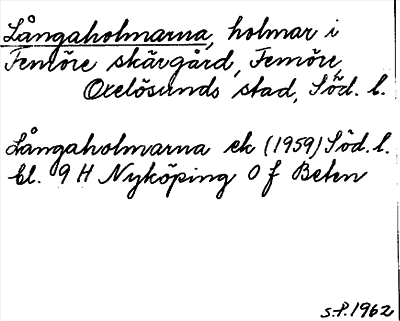 Långaholmarna, holmar i
Femöre skärgård, Femöre,
Oxelösunds stad, Söd. l.
Långaholmarna ek (1959) Söd. l.
bl. 9 H Nyköping 0 f Beten
S.P. 1962